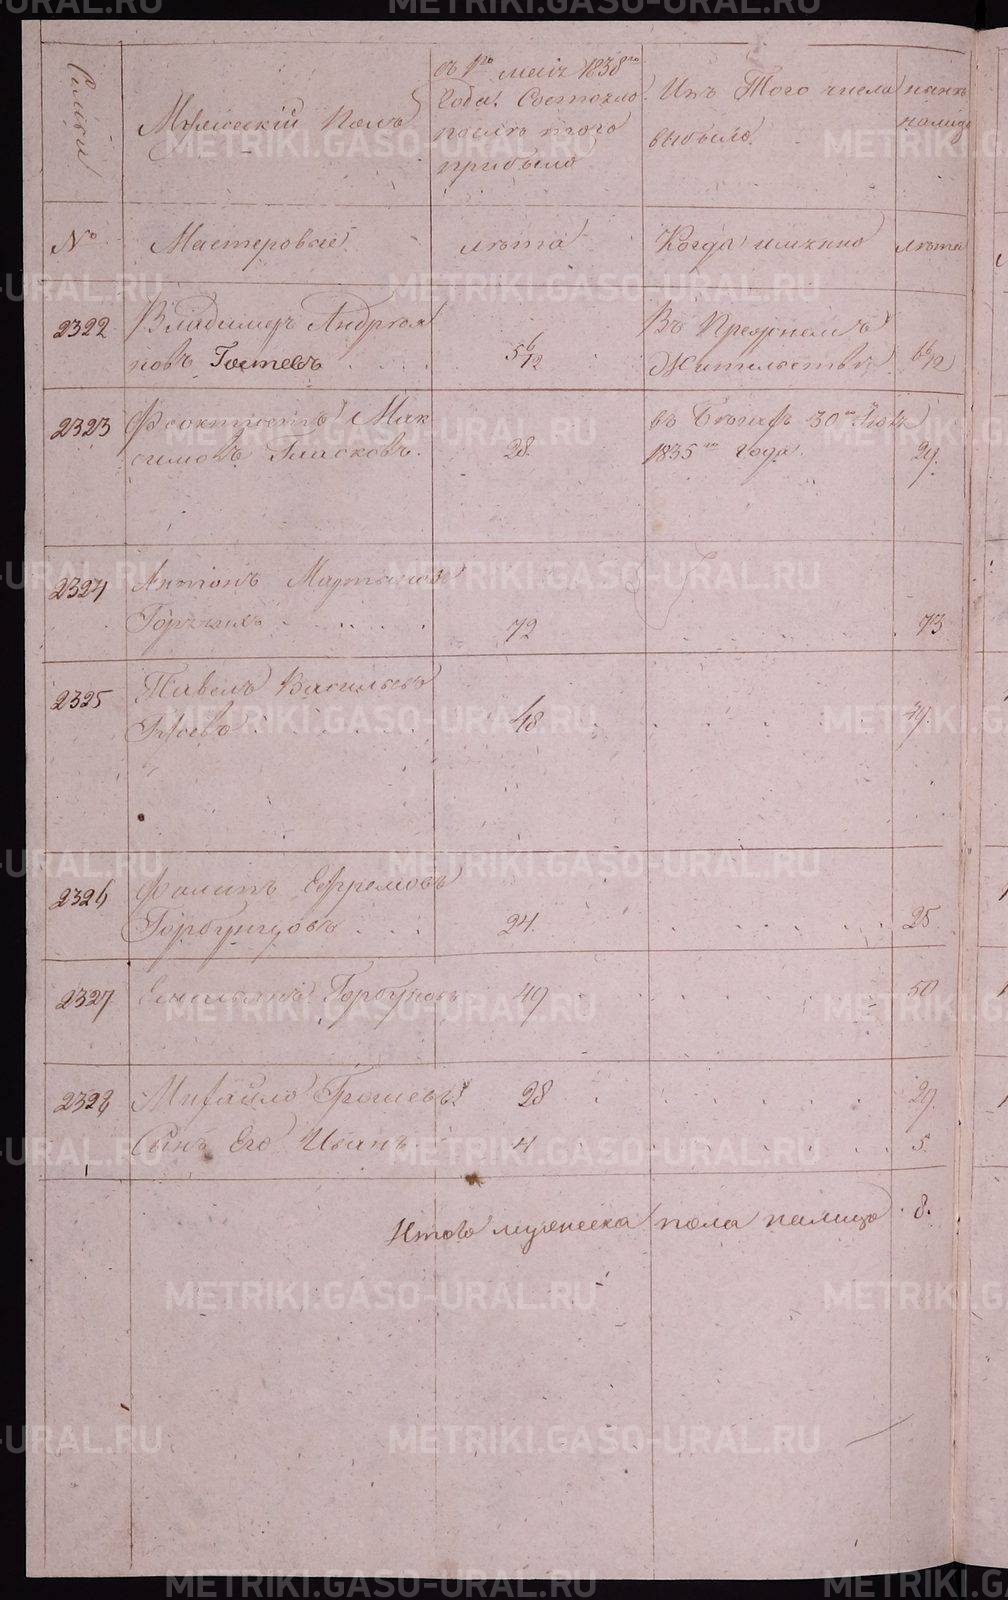 METRIKI.GASO-URAL.RU
Семьи
Мужескій Полъ
съ 1го маія 1838го
Года. Состояло
послѣ того
прибыло
Изъ Того числа
выбыло.
нынѣ
налицо
№
Мастеровые
лѣта
Когда имянно
лѣта
2322
Владимеръ Андреея
новъ Гостевъ
5 6/12
Въ Прежнемъ
Жительствѣ
6 6/12
2323
Феоктистъ Мак
симовъ Гласковъ.
28.
въ Бѣгахъ 30го
1835го Года.
29.
2324
Антонъ Мартыновъ
72
73
2325
Павелъ Васильевъ
48
49.
2326
Филипъ Ефремовъ
Горбунцовъ
24.
25
2327
Емельянъ Горбуновъ
49
50
2328
Михайло Грошевъ.
28
29.
Сынъ Его Иванъ
4
5.
Итого мужеска пола налицо
8.